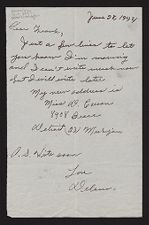 June 28, 1944
Dear Frank,
Just a few lines to let
you know I'm moving
and I can't write much now
but I will write later
My new address is
Miss D.
8908
Detroit Michigan
P.S. Write soon
Love
Delano